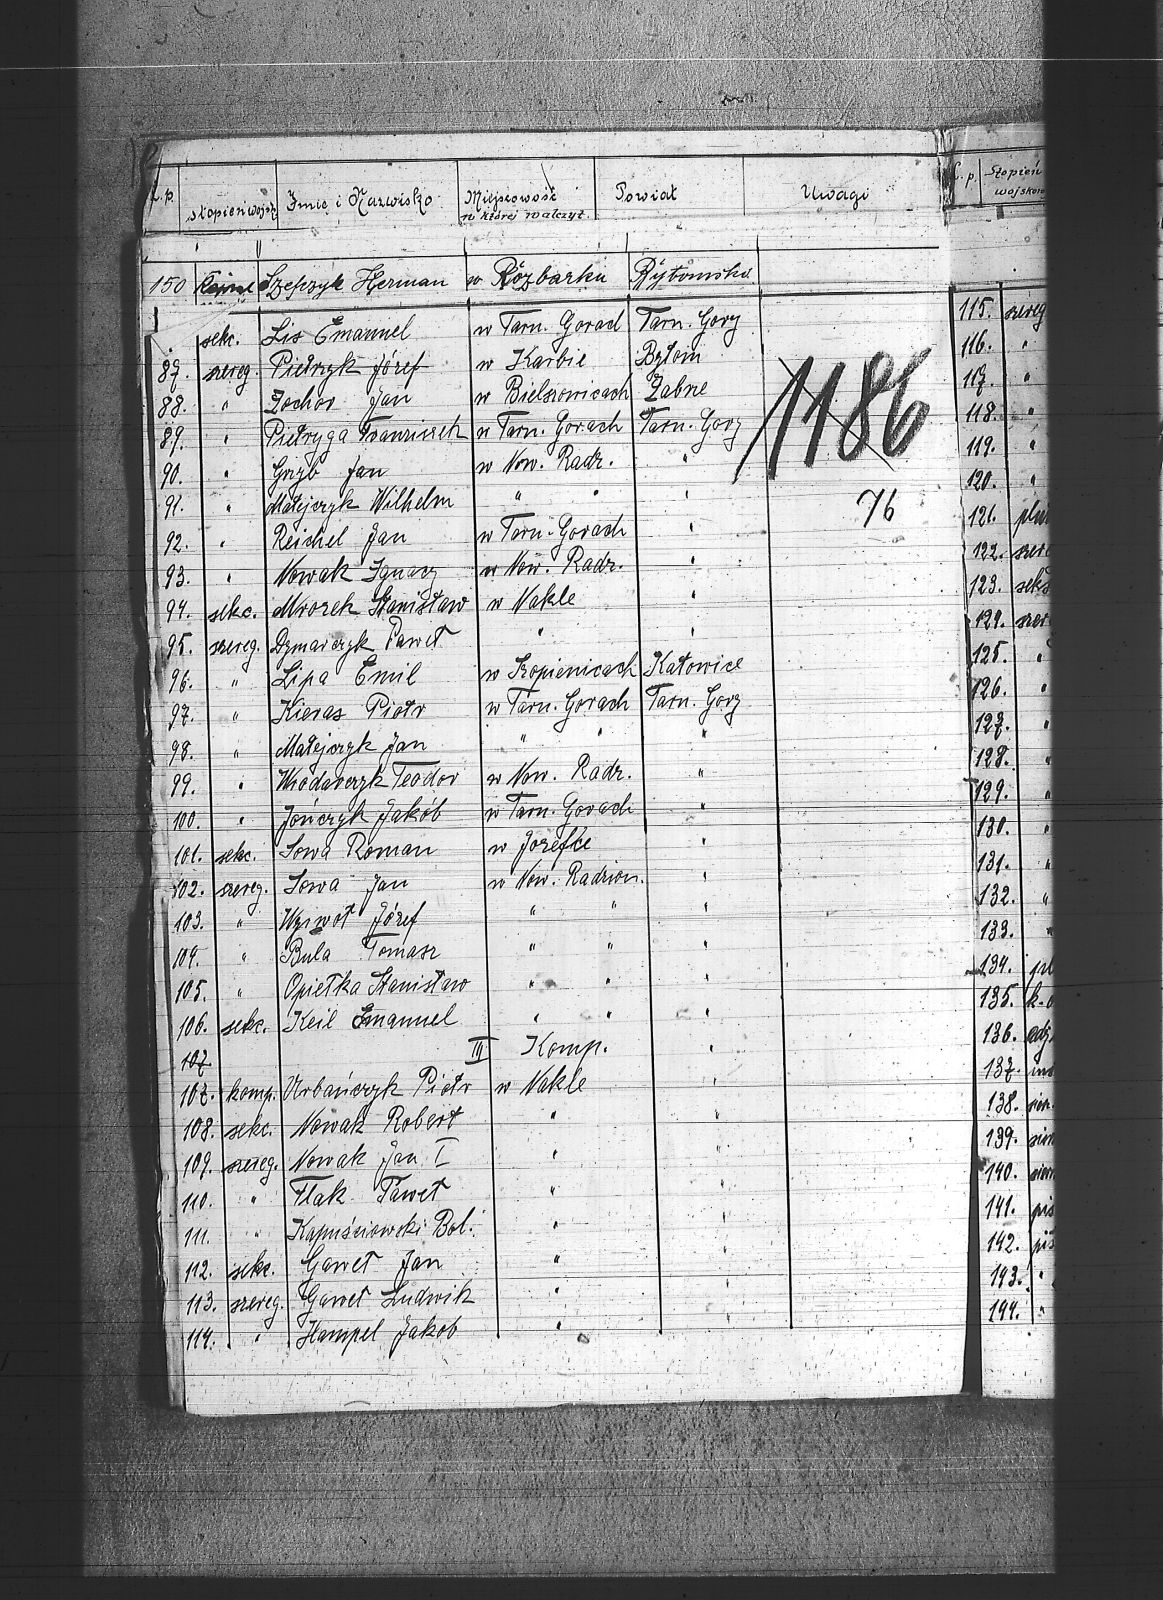 L.p. stopień wojsk. Imię i Nazwisko Miejscowość w której walczył Powiat Uwagi
150 Szejzyk Herman w Rozbarku Bytomsko
sekc. Lis Emanuel w Tarn. Gorach Tarn. Gory
87. szereg. Pietrzyk Józef w Karbie Bytom
88. " Zochor Jan w Bielszowicach Zabrze
89. " Pietryga Franziszek w Tarn. Gorach Tarn. Gory
90. " Grzyb Jan w Now. Radz. "
91. " Matejczyk Wilhelm " " "
92. " Reichel Jan w Tarn. Gorach "
93. " Nowak Ignacy w Now. Radz. "
94. sekc. Mrozek Stanisław w Nakle "
95. szereg. Dymarczyk Paweł " "
96. " Lipa Emil w Szopienicach Katowice
97. " Kieras Piotr w Tarn. Gorach Tarn. Gory
98. " Matejczyk Jan " " "
99. " Wlodarczyk Teodor w Now. Radz. "
100. " Jończyk Jakób w Tarn. Gorach "
101. sekc. Sowa Roman w Jozefce "
102. szereg. Sowa Jan w Now. Radzion. "
103. " Józef " " "
104. " Bula Tomasz " " "
105. " Opiełka Stanisław " " "
106. sekc. Keil Emanuel " " "
107 III Komp. "
107. komp. Urbańczyk Piotr w Nakle "
108. sekc. Nowak Robert " "
109. szereg. Nowak Jan I " "
110. " Flak Paweł " "
111. " Kapuściowski Bol. " "
112. sekc. Gaweł Jan " "
113. szereg. Gaweł Ludwik " "
114. " Hampel Jakob " "
1186
76
L.p. Stopień
wojskow
115. szereg
116. "
117. "
118. "
119. "
120. "
121.
122. szere
123. seks
124. szer
125. "
126. "
127. "
128. "
129. "
130. "
131. "
132. "
133. "
134.
135.
136.
137.
138.
139.
140.
141. pis
142. pis
143. "
144. "